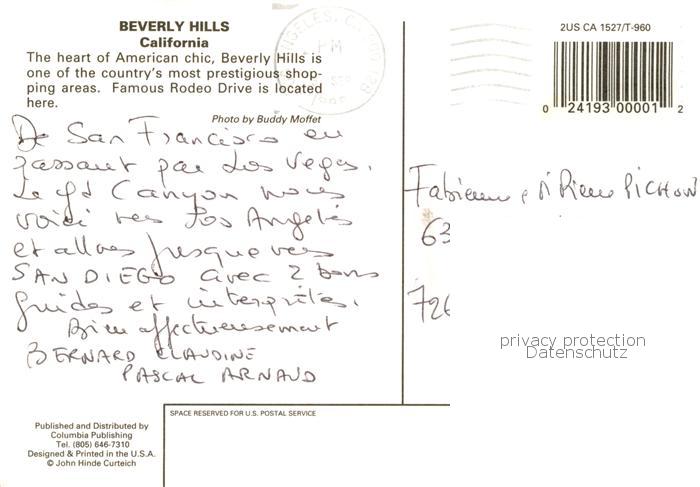 BEVERLY HILLS
California
The heart of American chic, Beverly Hills is
one of the country's most prestigious shop-
ping areas. Famous Rodeo Drive is located
here.
Photo by Buddy Moffet
De San Francisco en
passant par Las Vegas,
Le gd Canyon nous
voici vers Los Angeles
et allons jusque vers
SAN DIEGO avec 2 bons
guides et interprètes.
Bien affectueusement
BERNARD CLAUDINE
PASCAL ARNAUD
Published and Distributed by
Columbia Publishing
Tel. (805) 646-7310
Designed & Printed in the U.S.A.
© John Hinde Curteich
SPACE RESERVED FOR U.S. POSTAL SERVICE
ANGELES, CA
PM
2US CA 1527/T-960
0 24193 00001 2
Fabienne Pierre PICHON
63
726
privacy protection
Datenschutz